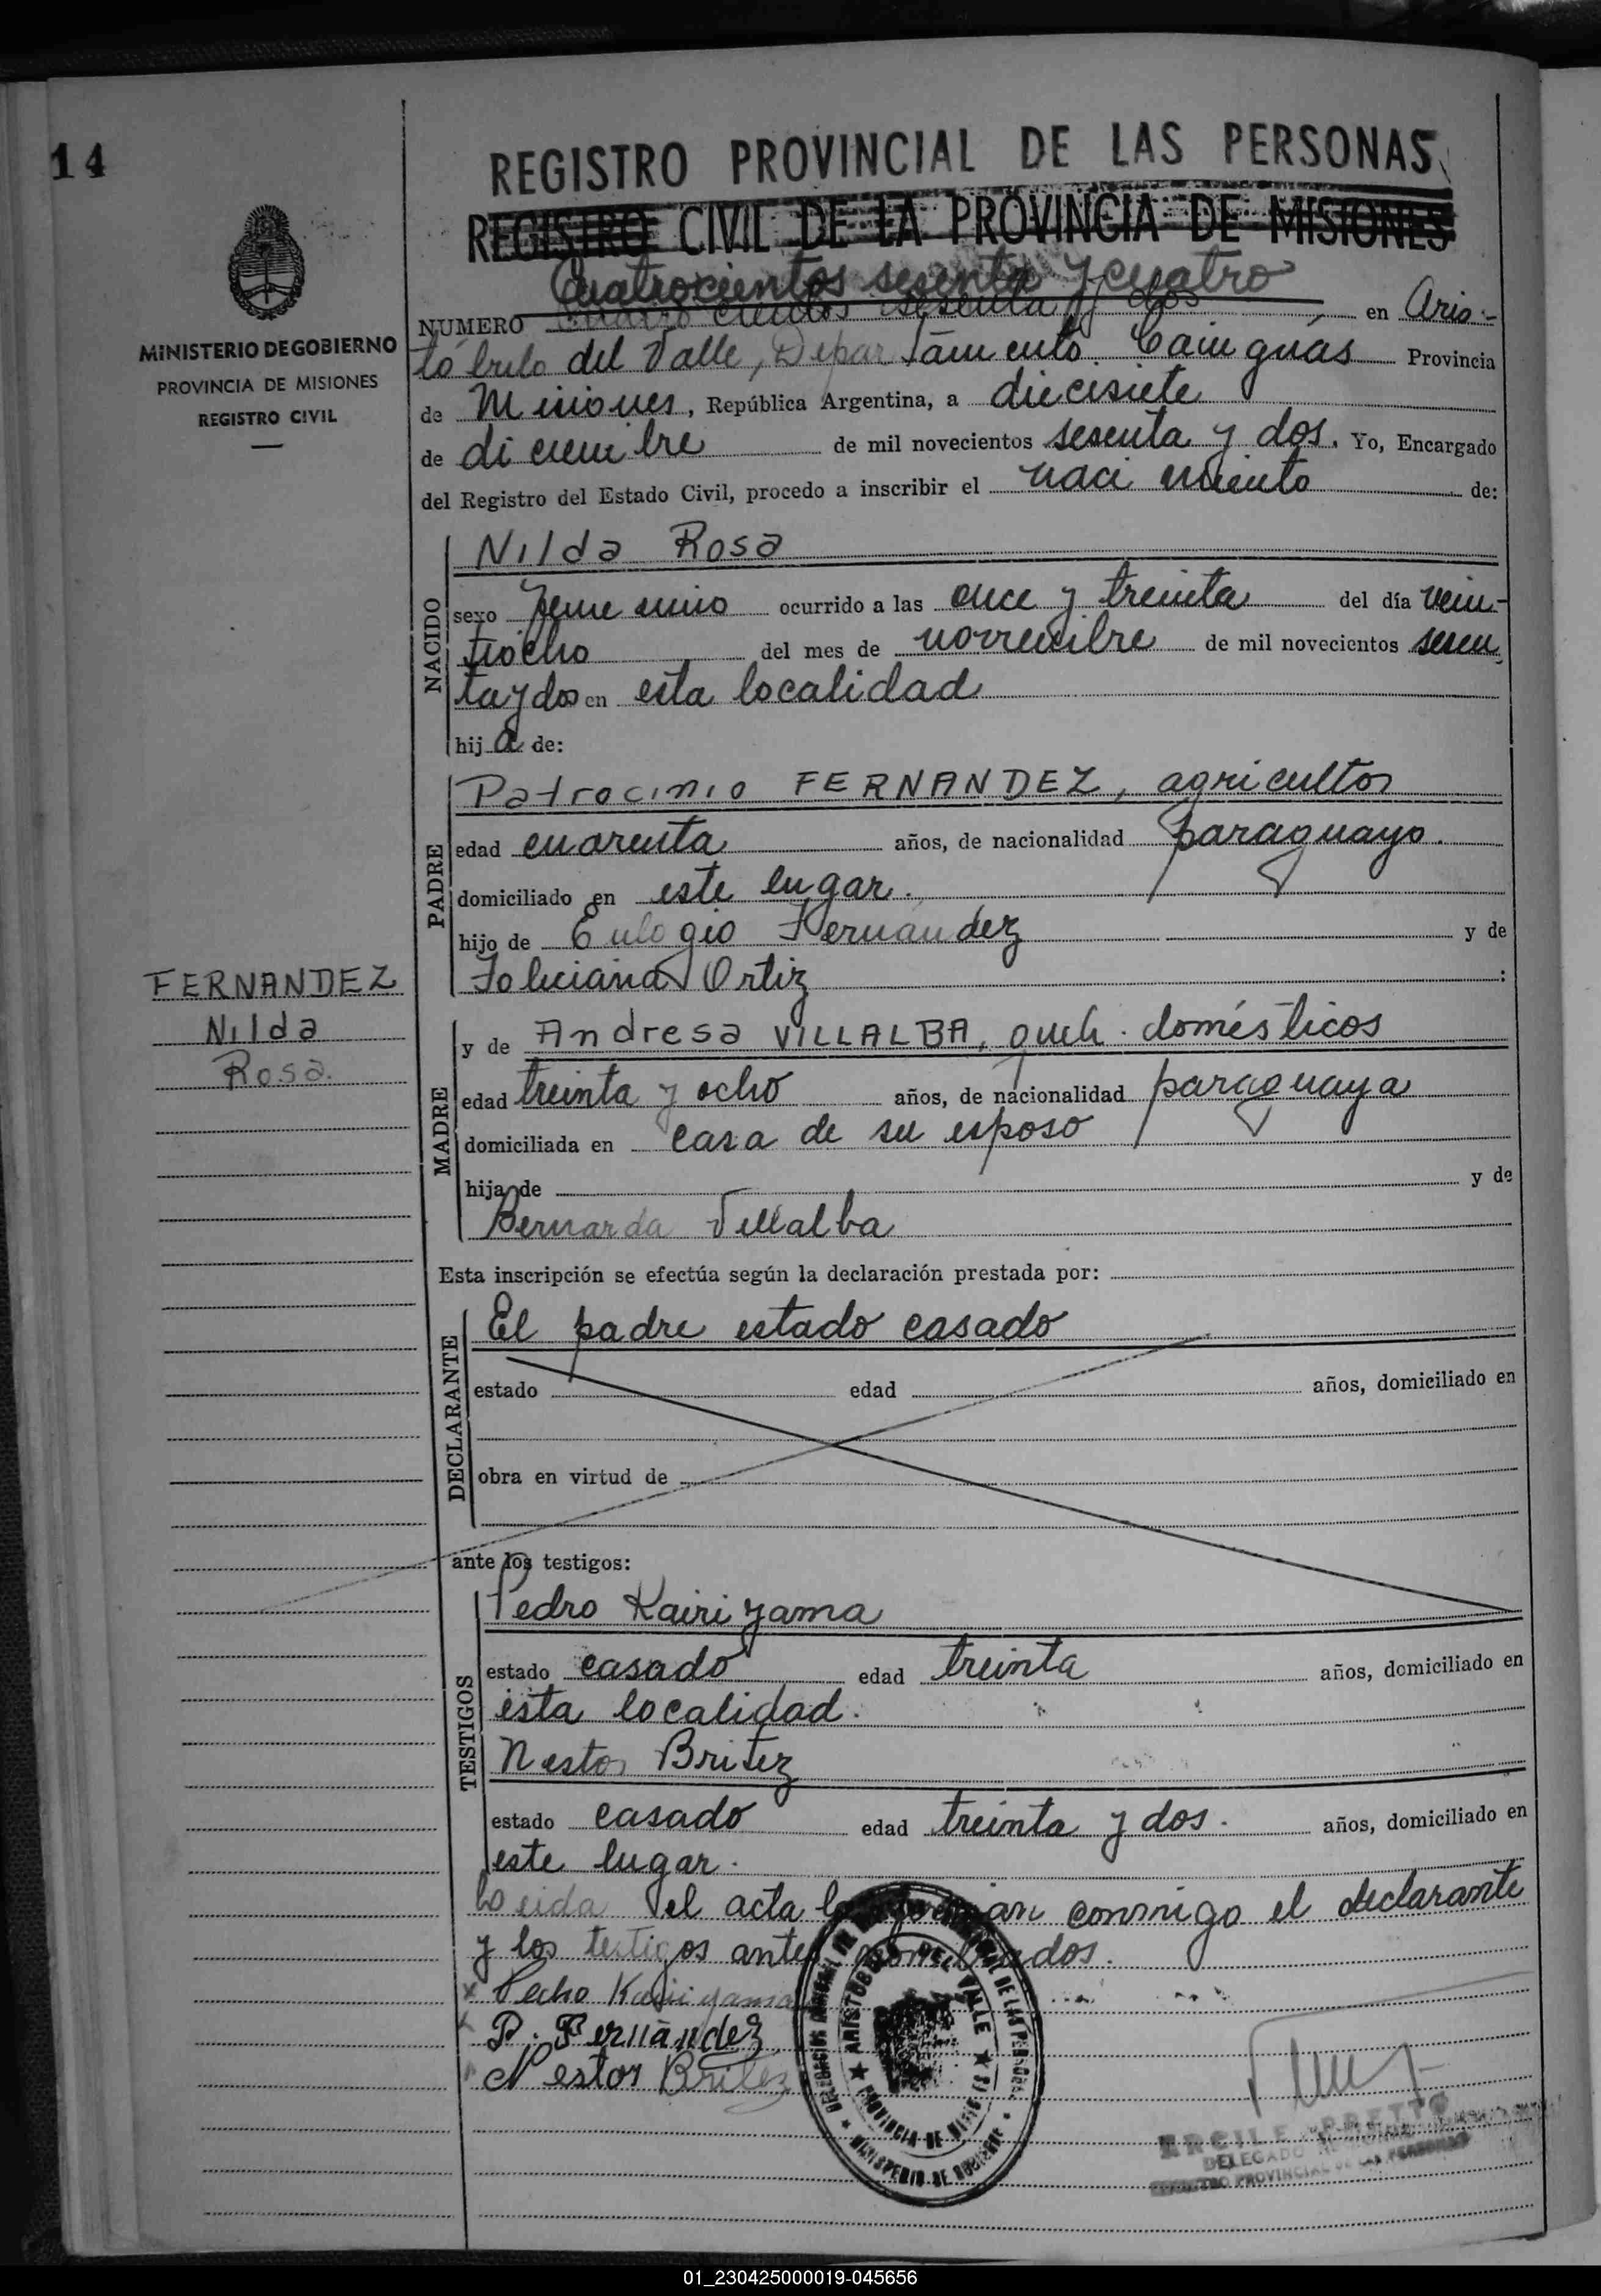 14
REGISTRO PROVINCIAL DE LAS PERSONAS
REGISTRO CIVIL DE LA PROVINCIA DE MISIONES
MINISTERIO DE GOBIERNO
PROVINCIA DE MISIONES
REGISTRO CIVIL
Cuatrocientos sesenta y cuatro
NUMERO cuatro cientos sesenta y dos en Aris-
tóbulo del Valle, Departamento Cainguás Provincia
de Misiones, República Argentina, a diecisiete
de diciembre de mil novecientos sesenta y dos. Yo, Encargado
del Registro del Estado Civil, procedo a inscribir el nacimiento de:
NACIDO
Nilda Rosa
sexo femenino ocurrido a las once y treinta del día vein-
tiocho del mes de noviembre de mil novecientos sesen
ta y dos en esta localidad
hija de:
PADRE
Patrocinio FERNANDEZ, agricultor
edad cuarenta años, de nacionalidad paraguayo.
domiciliado en este lugar.
hijo de Eulogio Fernández y de
Feliciana Ortiz :
FERNANDEZ
Nilda
Rosa.
MADRE
y de Andresa VILLALBA, queh. domésticos
edad treinta y ocho años, de nacionalidad paraguaya
domiciliada en casa de su esposo
hija de y de
Bernarda Villalba
Esta inscripción se efectúa según la declaración prestada por:
DECLARANTE
El padre estado casado
estado edad años, domiciliado en
obra en virtud de
ante los testigos:
TESTIGOS
Pedro Kairiyama
estado casado edad treinta años, domiciliado en
esta localidad.
Nestor Britez
estado casado edad treinta y dos. años, domiciliado en
este lugar.
Leida el acta la firman conmigo el declarante
y los testigos antes nombrados.
Pedro Kairiyama
P. Fernández
Nestor Britez
ARISTOBULO DEL VALLE
PROVINCIA DE MISIONES
MINISTERIO DE GOBIERNO
DELEGADO
REGISTRO PROVINCIAL DE LAS PERSONAS
01_230425000019-045656